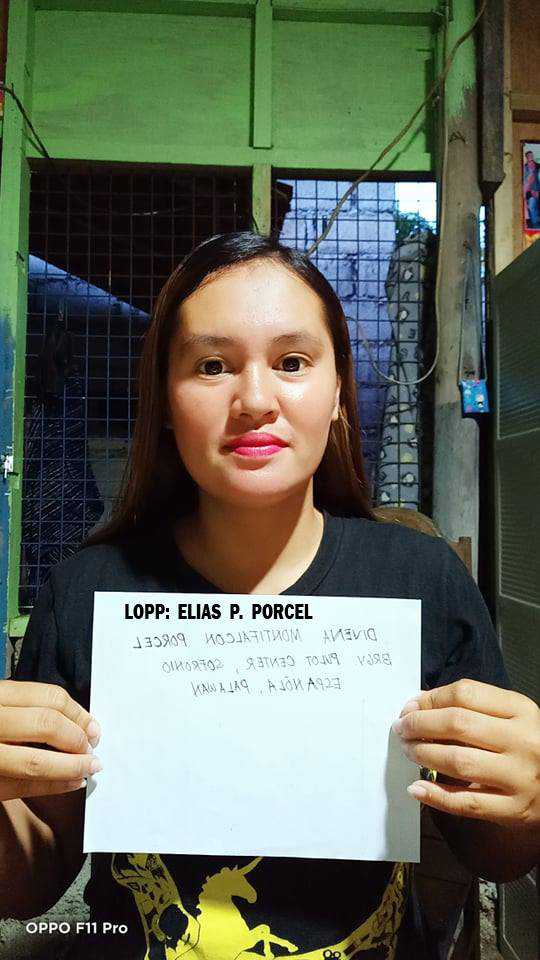 LOPP: ELIAS P. PORCEL
DIVENA MONTIFALCON PORCEL
BRGY PULOT CENTER, SOFRONIO
ESPAÑOLA, PALAWAN
OPPO F11 Pro